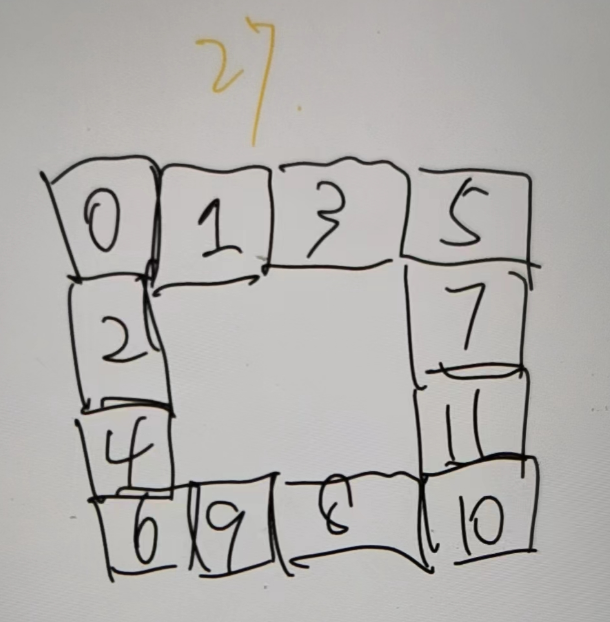 27.
0 1 3 5
2 7
4 11
6 9 8 10